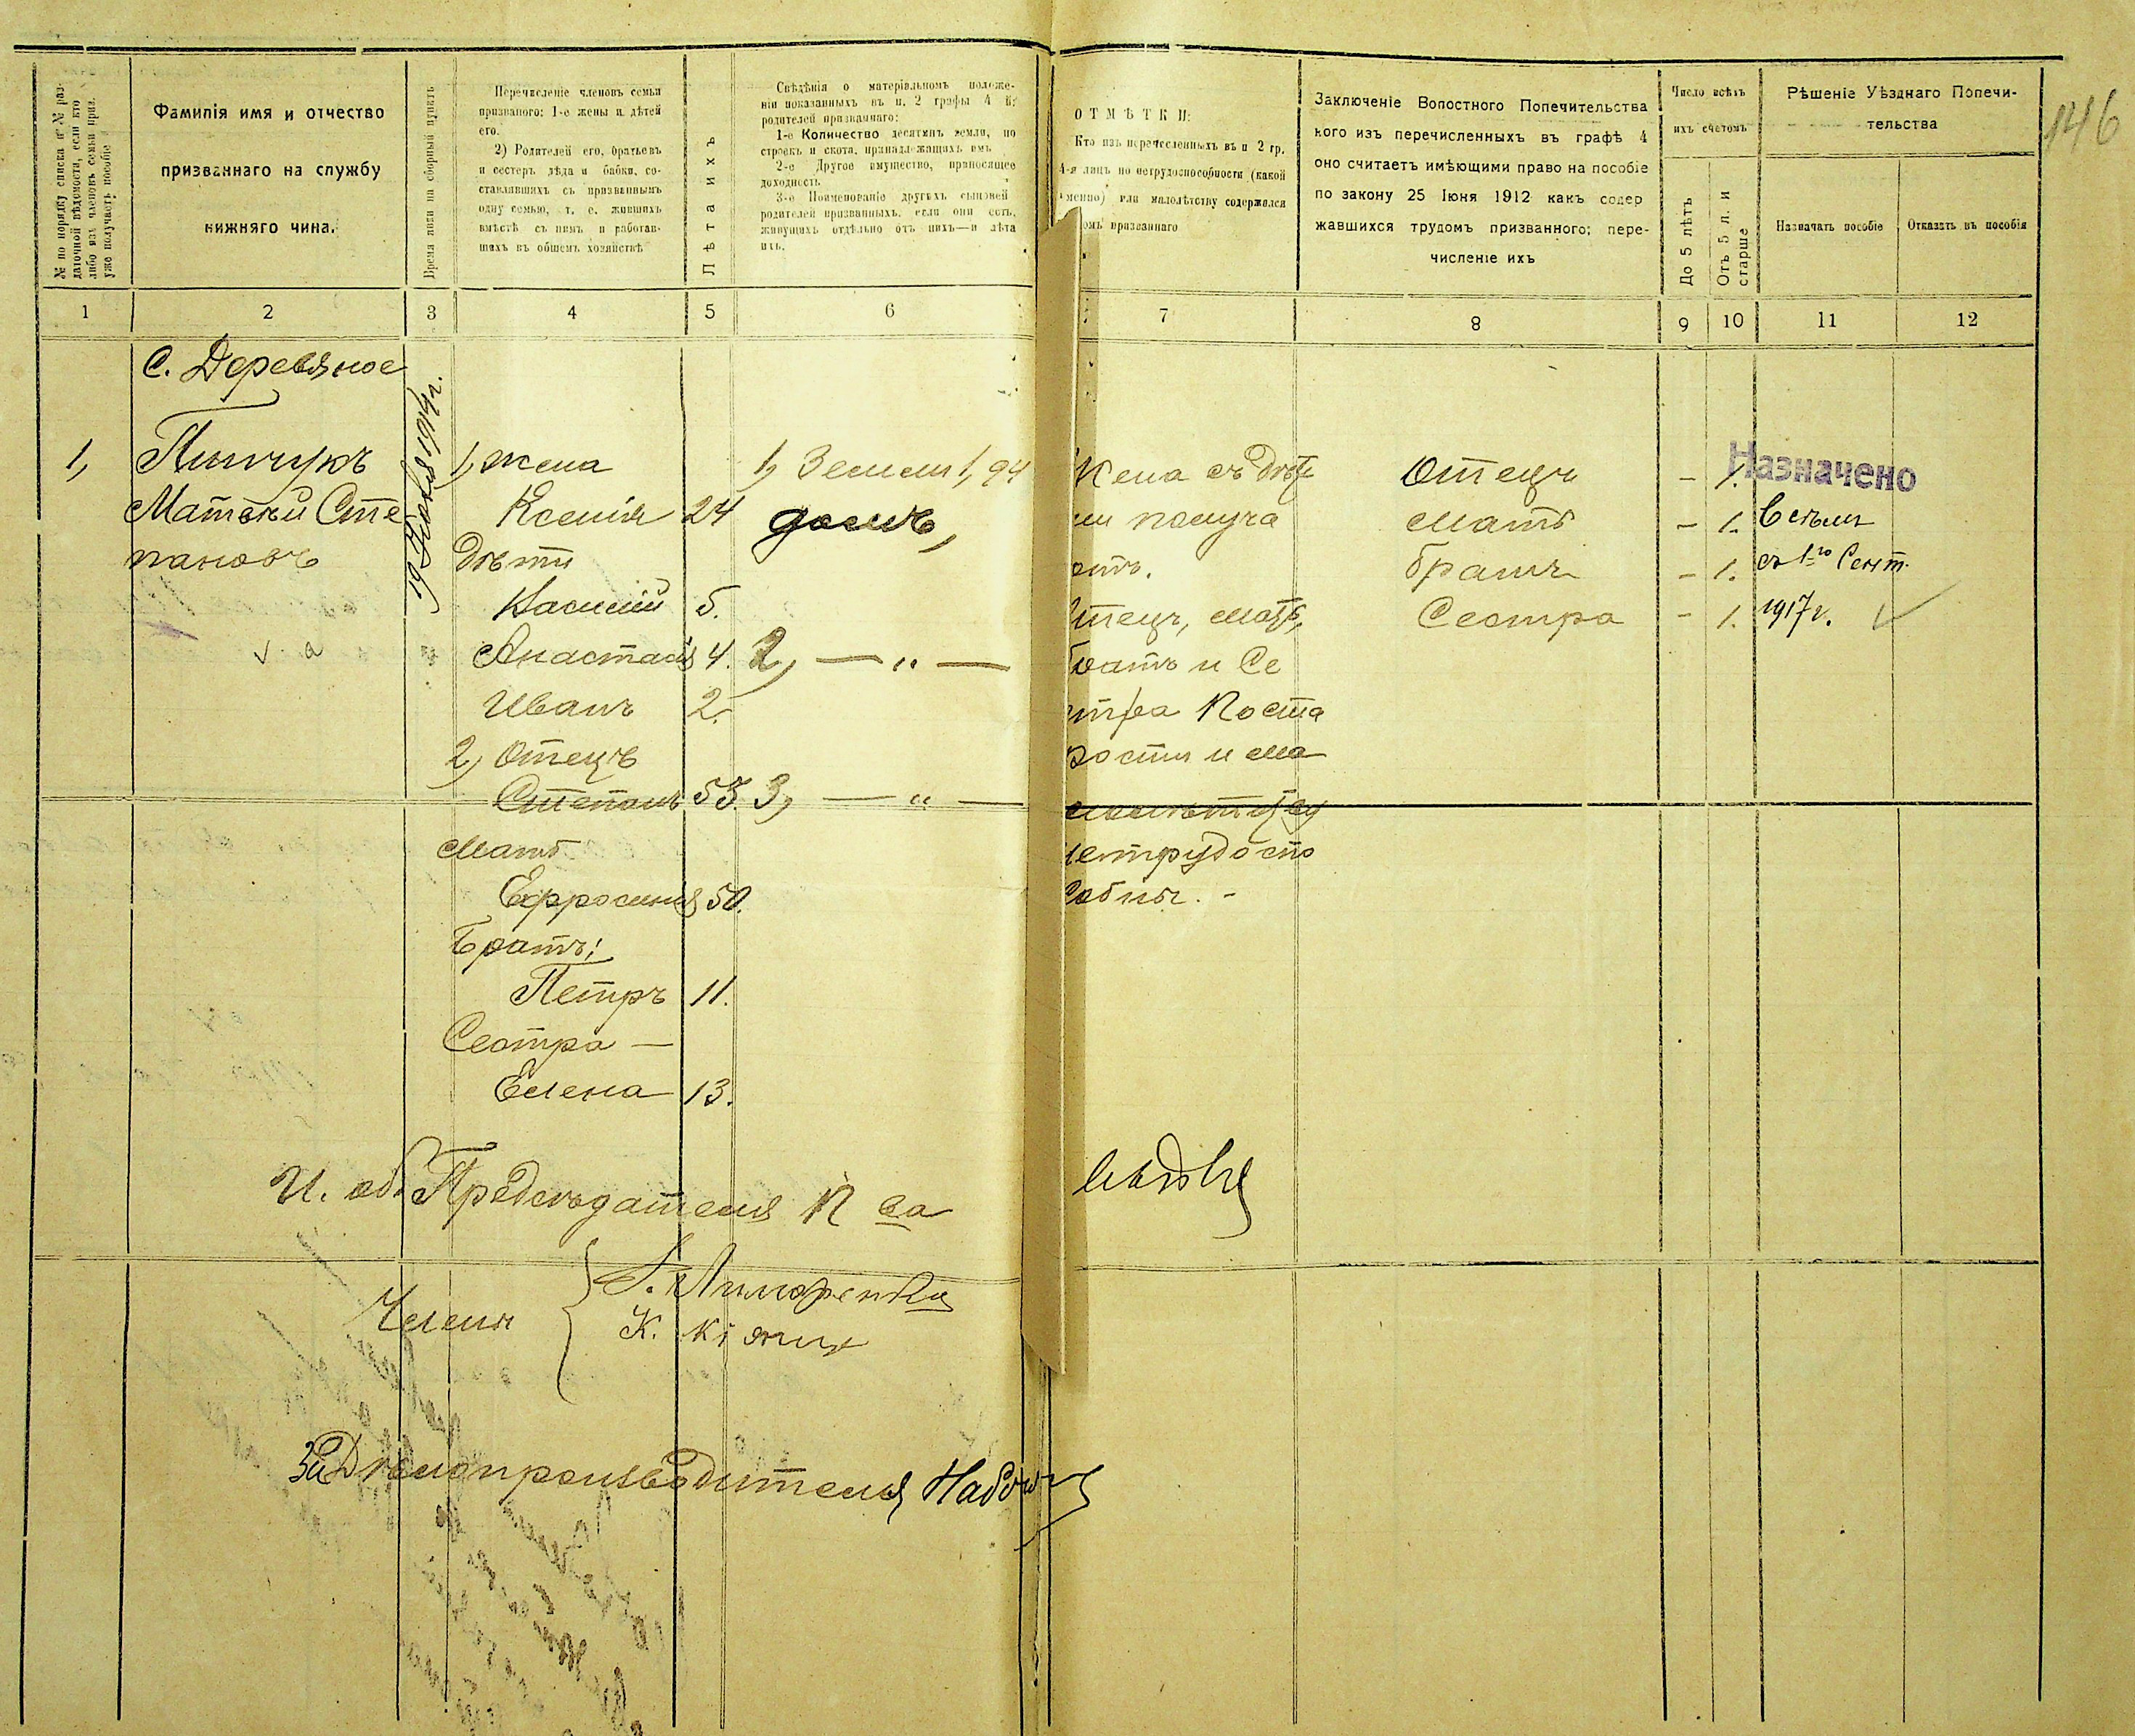 146
№ по порядку списка и № раз-
даточной вѣдомости, если кто
либо изъ членовъ семьи приз.
уже получаетъ пособіе
Фамилія имя и отчество
призваннаго на службу
нижняго чина.
Время явки на сборный пунктъ
Перечисленіе членовъ семьи
призванаго: 1-е жены и дѣтей
его.
2) Родителей его, братьевъ
и сестеръ дѣда и бабки, со-
ставлявшихъ съ призваннымъ
одну семью, т. е. жившихъ
вмѣстѣ съ нимъ и работав-
шихъ въ общемъ хозяйствѣ
Лѣта ихъ
Свѣдѣнія о матеріальномъ положе-
ніи показанныхъ въ п. 2 графы 4 й:
родителей призваннаго:
1-е Количество десятинъ земли, по
строекъ и скота, принадлежащихъ имъ
2-е Другое имущество, приносящее
доходность.
3-е Поименованіе другихъ сыновей
родителей призванныхъ, если они есть,
живущихъ отдѣльно отъ нихъ—и лѣта
ихъ.
ОТМѢТКИ:
Кто изъ перечесленныхъ въ п 2 гр.
4-я лицъ по нетрудоспособности (какой
менно) или малолѣтству содержался
омъ призваннаго
Заключеніе Волостного Попечительства
кого изъ перечисленныхъ въ графѣ 4
оно считаетъ имѣющими право на пособіе
по закону 25 Іюня 1912 какъ содер
жавшихся трудомъ призванного; пере-
численіе ихъ
Число всѣхъ
ихъ счетомъ
До 5 лѣтъ
Отъ 5 л. и
старше
Рѣшеніе Уѣзднаго Попечи-
тельства
Назначать пособіе
Отказать въ пособіи
1 2 3 4 5 6 7 8 9 10 11 12
С. Деревяное
1, Пинчукъ 1, жена 1, Земли 1,94 Жена съ дѣть Отецъ - 1. Назначено
Матвѣй Сте Ксенія 24 домъ, ми получа Мать - 1. Всѣмъ
пановъ Дѣти етъ. братъ - 1. съ 1-го Сент.
5. Отецъ, мать, Сестра - 1. 1917 г.
Анастасія 4. 2, — „ — братъ и Се
Иванъ 2. стра По ста
2, Отецъ рости и ма
Степанъ 53. 3, — „ —
Мать нетрудоспо
Ефросинія 50. собны. -
Братъ:
Петръ 11.
Сестра —
Елена 13.
И. об. Предсѣдателя П ва
Члены
К.
За Дѣлопроизводителя